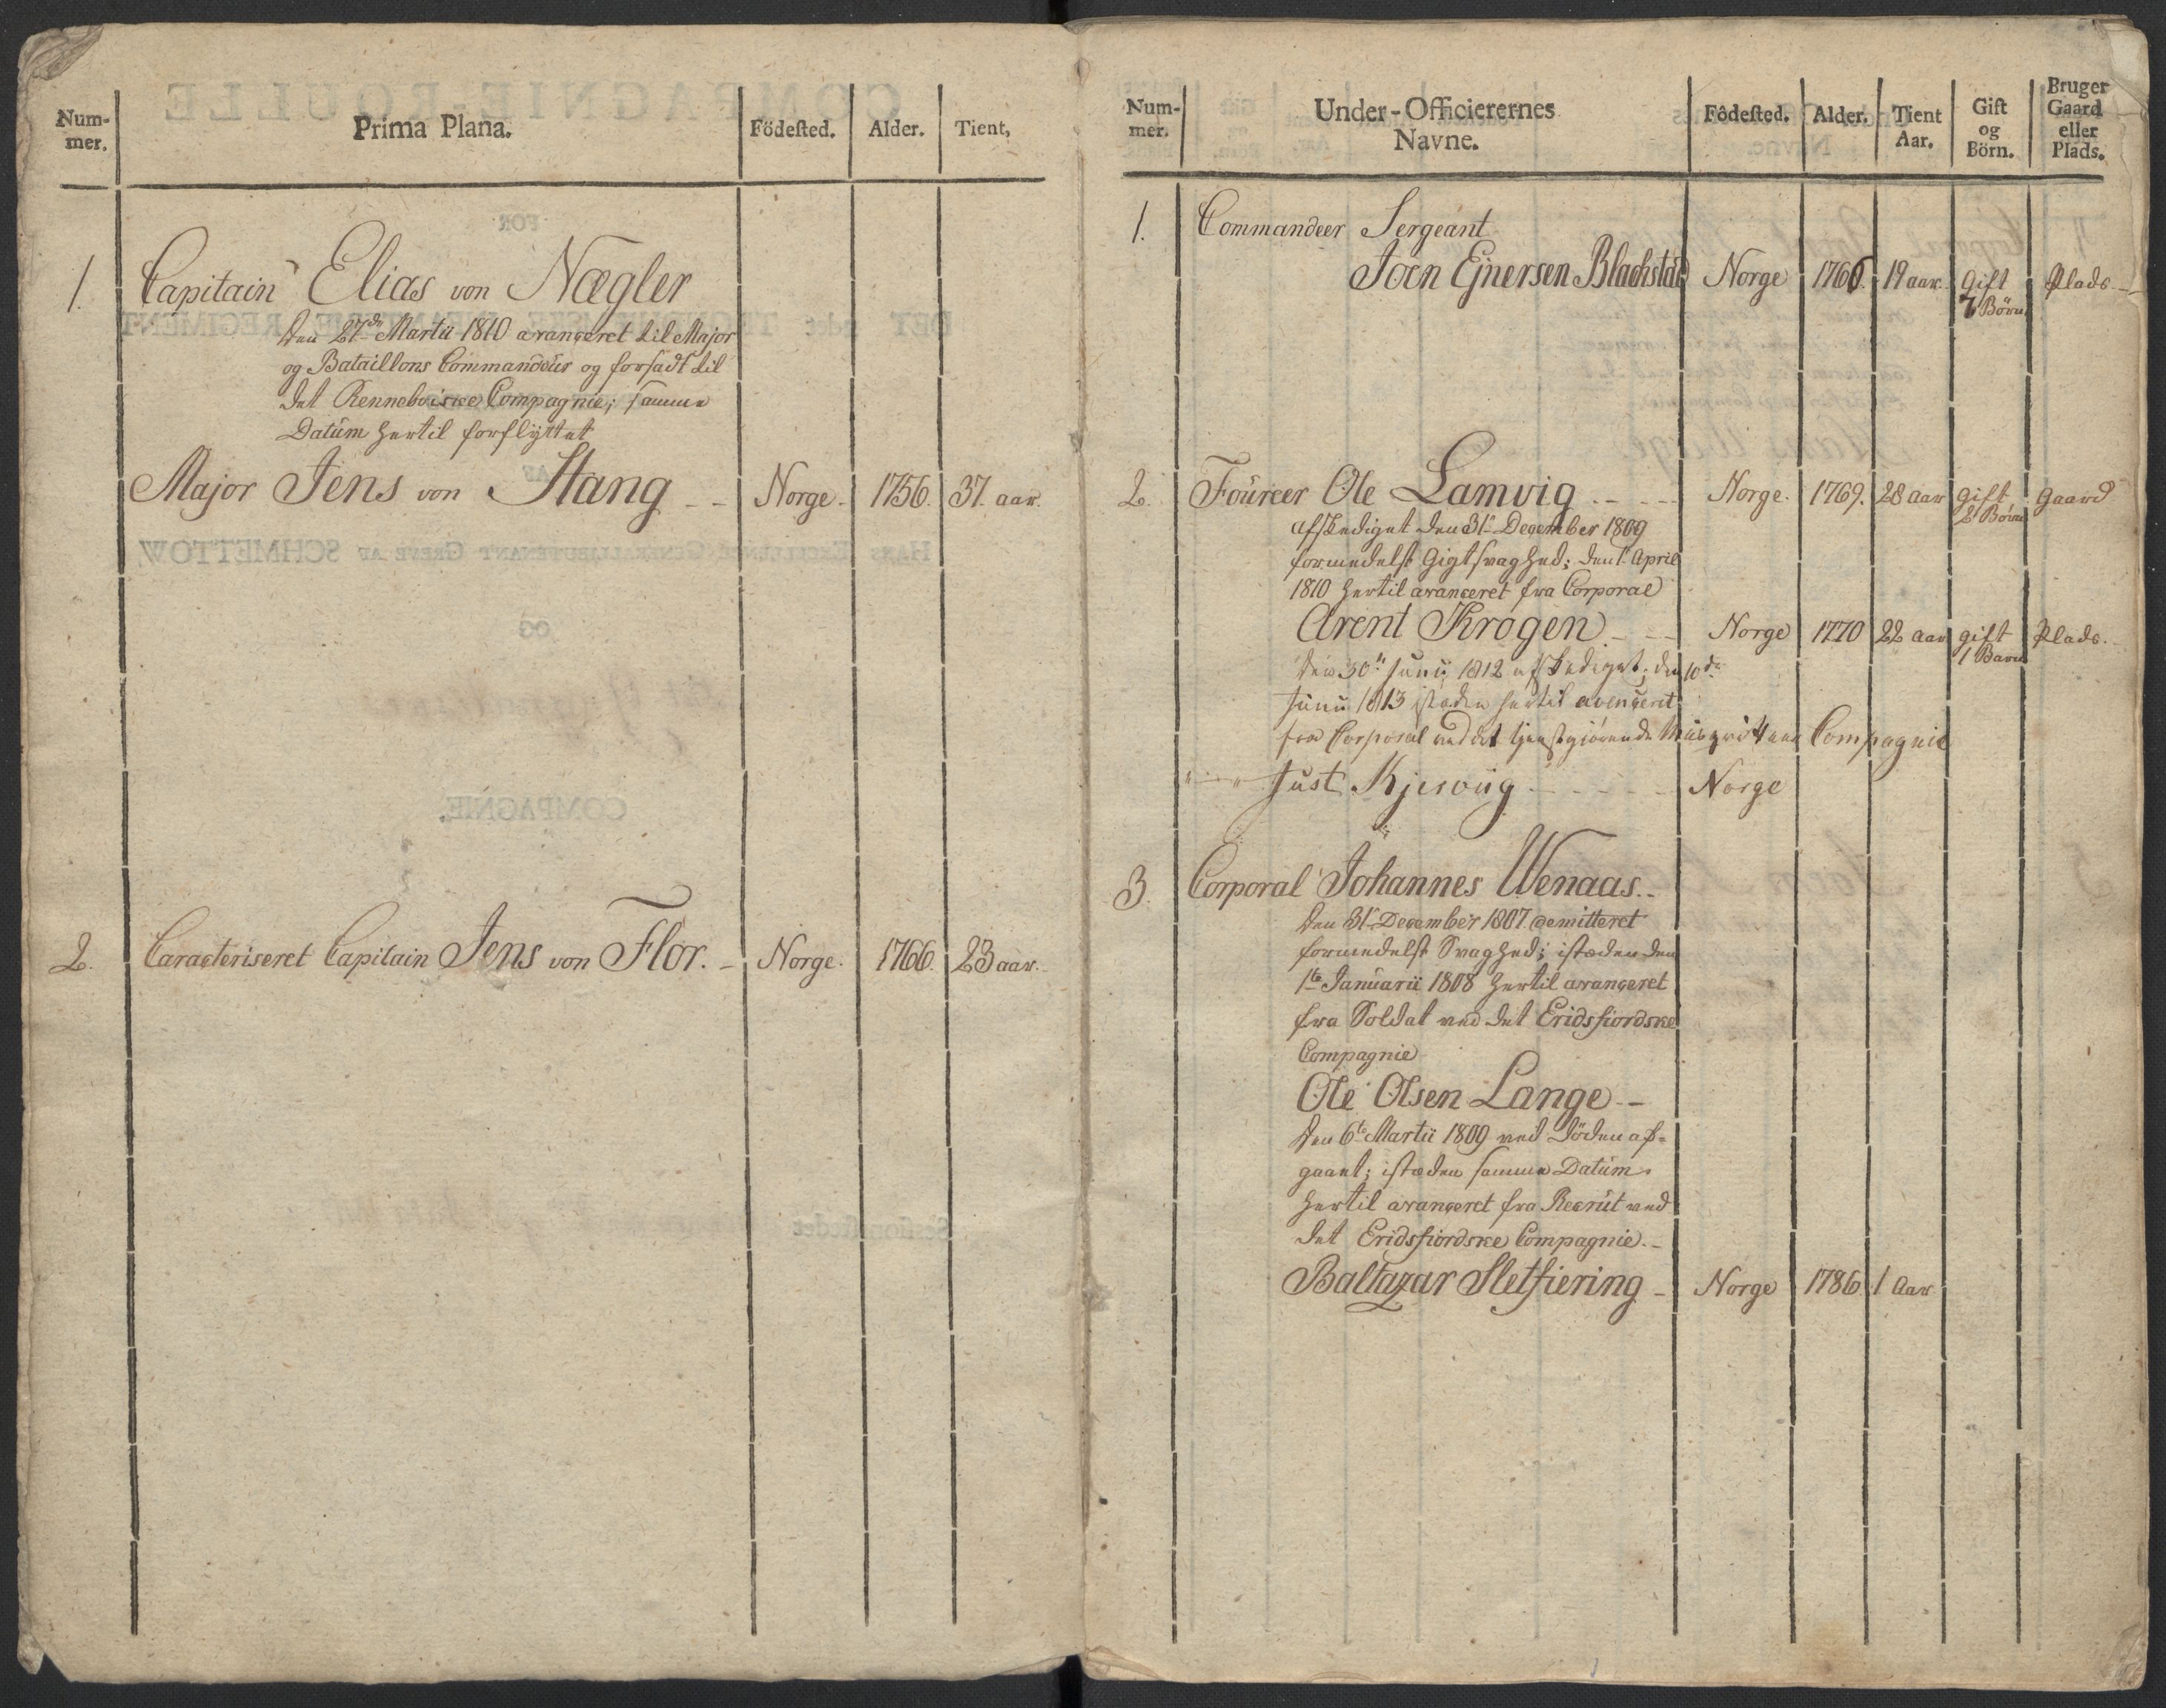 Num-
mer.
Prima Plana.
Födested.
Alder.
Tient,
1.
Capitain Elias von Nægler
Den 27de Martii 1810 avanceret til Major
og Bataillons Commandeur og forsadt til
det Renneboiske Compagnie; samme
Datum hertil forflyttet
Major Jens von Stang - - Norge. 1756. 37. aar.
2. Caracteriseret Capitain Jens von Flor. - Norge. 1766. 23 aar.
Num-
mer.
Under-Officierernes
Navne.
Födested.
Alder.
Tient
Aar.
Gift
og
Börn.
Bruger
Gaard
eller
Plads.
1. Commandeer Sergeant
Joen Ejnersen Blachstad Norge 1766. 19 aar. Gift Plads -
7 Börn
2. Foureer Ole Lamvig - - - - Norge. 1769. 28 aar gift Gaard
2 Börn
afskediget den 31te December 1809
formedelst Gigtsvaghed; den 1te April
1810 hertil avanceret fra Corporal
Arent Krogen - - - Norge 1770 22 aar gift Plads.
1 Barn
den 30te Junii 1812 afskediget; den 10de
Junii 1813 isteden hertil avenceret
fra Corporal ved det tjenstgjörende Compagnie
Just - - - - - Norge
3. Corporal Johannes Wenaas. -
Den 31te December 1807 demitteret
formedelst Svaghed; isteden den
1te Januarii 1808 hertil avanceret
fra Soldat ved det Eridsfiordske
Compagnie
Ole Olsen Lange - -
Den 6te Martii 1809 ved Döden af-
gaaet; isteden samme Datum
hertil avanceret fra Recrut ved
det Eridsfiordske Compagnie. -
Baltazar Sletfiering - Norge 1786. 1 Aar